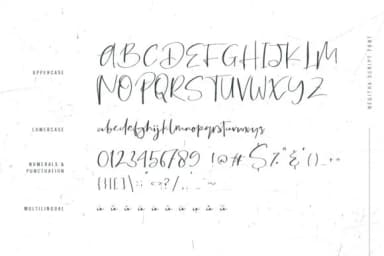 UPPERCASE
ABCDEFGHIJKLM
NOPQRSTUVWXYZ
LOWERCASE
abcdefghijklmnopqrstuvwxyz
NUMERALS &
PUNCTUATION
0123456789 !@#$%^&()_-+
{}[]\:;"<>?/,._~
MULTILINGUAL
NEGISTHA SCRIPT FONT